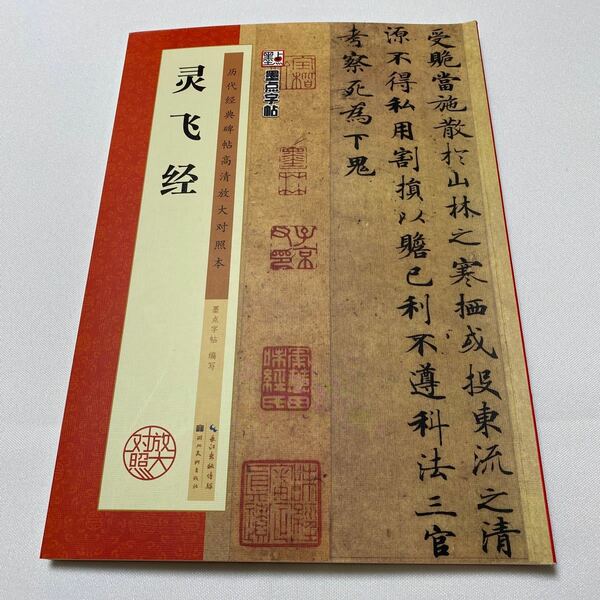 灵飞经
历代经典碑帖高清放大对照本
墨点字帖 编写
放大
对照
长江出版传媒
湖北美术出版社
墨点字帖
受赡當施散於山林之寒栖或投東流之清
源不得私用割損以贍己利不遵科法三官
考察死為下鬼